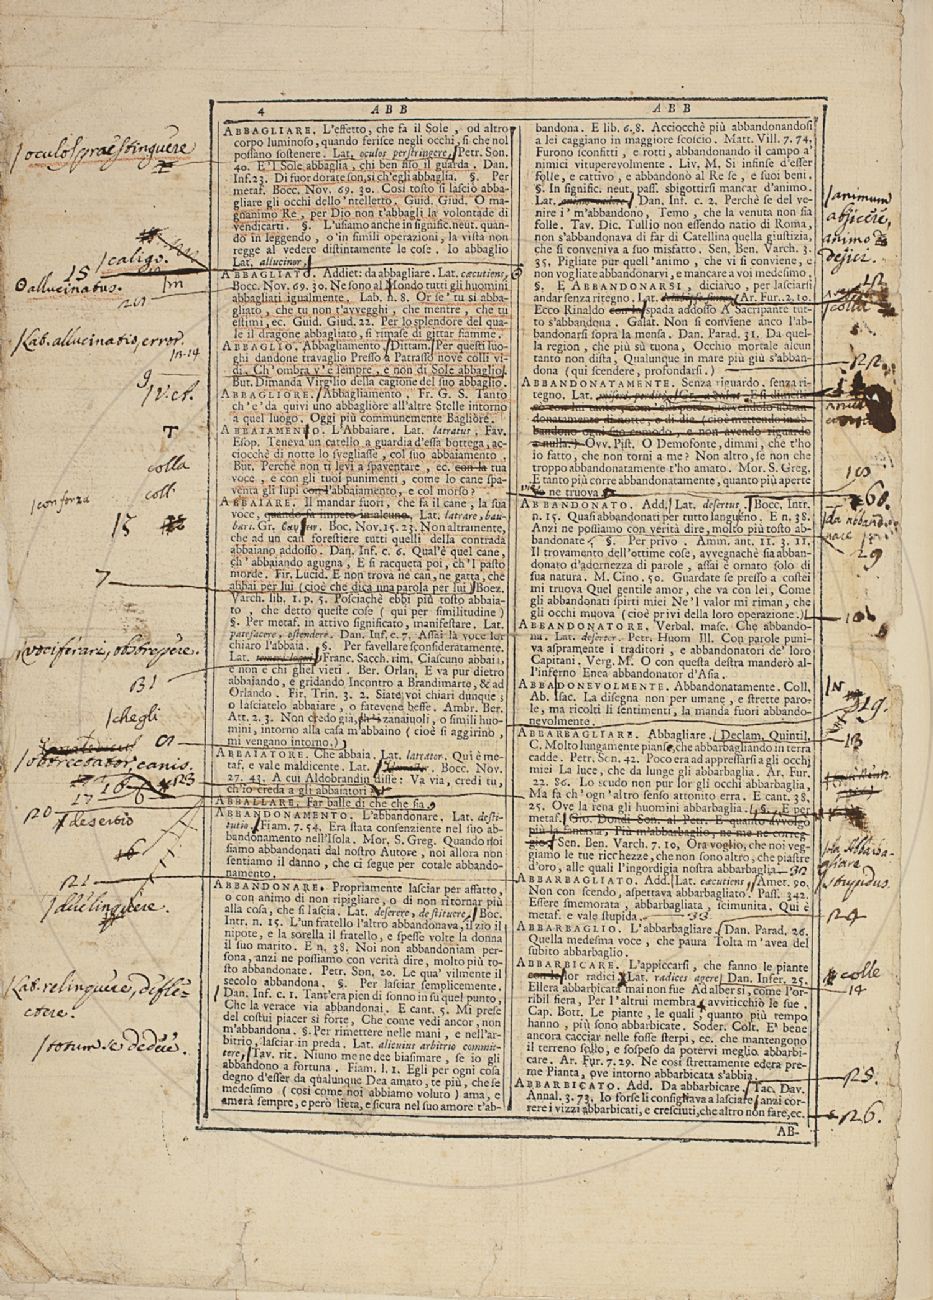 4 ABB ABB
ABBAGLIARE. L'effetto, che fa il Sole, od altro
corpo luminoso, quando ferisce negli occhi, sì che nol
possano sostenere. Lat. oculos perstringere, Petr. Son.
40. E'l Sole abbaglia, chi ben fiso il guarda. Dan.
Inf. 23. Di fuor dorate son, sì ch'egli abbaglia. §. Per
metaf. Bocc. Nov. 69. 30. Così tosto si lasciò abba-
gliare gli occhi dello 'ntelletto. Guid. Giud. O ma-
gnanimo Re, per Dio non t'abbagli la volontade di
vendicarti. §. L'usiamo anche in signific. neut. quan-
do in leggendo, o'in simili operazioni, la vista non
regge al vedere distintamente le cose. Io abbaglio
Lat. allucinor.
ABBAGLIATO. Addiet: da abbagliare. Lat. cæcutiens,
Bocc. Nov. 69. 30. Ne sono al Mondo tutti gli huomini
abbagliati igualmente. Lab. n. 8. Or se' tu sì abba-
gliato, che tu non t'avvegghi, che mentre, che tu
estimi, ec. Guid. Giud. 22. Per lo splendore del qua-
le il dragone abbagliato, si rimase di gittar fiamme.
ABBAGLIO. Abbagliamento. Dittam. Per questi luo-
ghi dandone travaglio Presso a Patrasso nove colli vi-
di. Ch'ombra v'è sempre, e non di Sole abbaglio
But. Dimanda Virgilio della cagione del suo abbaglio.
ABBAGLIORE. Abbagliamento, Fr. G. S. Tanto
ch'e' da quivi uno abbagliòre all'altre Stelle intorno
a quel luogo. Oggi più communemente Bagliore.
ABBAIAMENTO. L'Abbaiare. Lat. latratus, Fav.
Esop. Teneva un catello a guardia d'essa bottega, ac-
ciocchè di notte lo svegliasse, col suo abbaiamento.
But. Perchè non ti levi a spaventare, ec. con la tua
voce, e con gli tuoi punimenti, come lo cane spa-
venta gli lupi con l'abbaiamento, e col morso?
ABBAIARE. Il mandar fuori, che fa il cane, la sua
voce, quando fa impeto in alcuno. Lat. latrare, bau-
bari. Gr. Boc. Nov. 15. 23. Non altramente,
che ad un can forestiere tutti quelli della contrada
abbaiano addosso. Dan. Inf. c. 6. Qual'è quel cane,
ch'abbaiando agugna, E si racqueta poi, ch'l pasto
morde. Fir. Lucid. E non trova nè can, ne gatta, che
abbai per lui (cioè che dica una parola per lui) Boez.
Varch. lib. 1. p. 5. Posciachè ebbi più tosto abbaia-
to, che detto queste cose (qui per similitudine)
§. Per metaf. in attivo significato, manifestare. Lat.
patefacere, ostendere. Dan. Inf. c. 7. Assai la voce lor
chiaro l'abbaia. §. Per favellare sconsideratamente.
Lat. Franc. Sacch. rim. Ciascuno abbaia,
e non è chi gliel vieti. Ber. Orlan. E va pur dietro
abbaiando, e gridando Incontro a Brandimarte, & ad
Orlando. Fir. Trin. 3. 2. Siate voi chiari dunque;
o lasciatelo abbaiare, o fatevene beffe. Ambr. Ber.
Att. 2. 3. Non credo già, zanaiuoli, o simili huo-
mini, intorno alla casa m'abbaino (cioè si aggirino,
mi vengano intorno.)
ABBAIATORE. Che abbaia, Lat. latrator. Qui è me-
taf. e vale maldicente. Lat. Bocc. Nov.
27. 43. A cui Aldobrandin disse: Va via, credi tu,
ch'io creda a gli abbaiatori
ABBALLARE. Far balle di che che sia.
ABBANDONAMENTO. L'abbandonare. Lat. desti-
tutio, Fiam. 7. 54. Era stata consenziente nel suo ab-
bandonamento nell'Isola. Mor. S. Greg. Quando noi
siamo abbandonati dal nostro Autore, noi allora non
sentiamo il danno, che ci segue per cotale abbando-
namento.
ABBANDONARE. Propriamente lasciar per affatto,
o con animo di non ripigliare, o di non ritornar più
alla cosa, che si lascia. Lat. deserere, destituere, Boc.
Intr. n. 15. L'un fratello l'altro abbandonava, il zio il
nipote, e la sorella il fratello, e spesse volte la donna
il suo marito. E n. 38. Noi non abbandoniam per-
sona, anzi ne possiamo con verità dire, molto più to-
sto abbandonate. Petr. Son. 20. Le qua' vilmente il
secolo abbandona. §. Per lasciar semplicemente.
Dan. Inf. c. 1. Tant'era pien di sonno in su quel punto,
Che la verace via abbandonai. E cant. 5. Mi prese
del costui piacer sì forte, Che come vedi ancor, non
m'abbandona. §. Per rimettere nelli mani, e nell'ar-
bitrio, lasciar in preda. Lat. alicuius arbitrio commit-
tere, Tav. rit. Niuno me ne dee biasimare, se io gli
abbandono a fortuna. Fiam. l. 1. Egli per ogni cosa
degno d'esser da qualunque Dea amato, te più, che se
medesimo (così come noi abbiamo voluto) ama, e
amerà sempre, e però lieta, e sicura nel suo amore t'ab-
bandona. E lib. 6. 8. Acciocchè più abbandonandosi
a lei caggiano in maggiore scoscio. Matt. Vill. 7. 74.
Furono sconfitti, e rotti, abbandonando il campo a'
nimici vituperevolmente. Liv. M. Si infinse d'esser
folle, e cattivo, e abbandonò al Re se, e suoi beni.
§. In signific. neut. pass. sbigottirsi mancar d'animo.
Lat. Dan. Inf. c. 2. Perchè se del ve-
nire i' m'abbandono, Temo, che la venuta non sia
folle. Tav. Dic. Tullio non essendo natio di Roma,
non s'abbandonava di far di Catellina quella giustizia,
che si conveniva a suo misfatto. Sen. Ben. Varch. 3.
35. Pigliate pur quell'animo, che vi si conviene, e
non vogliate abbandonarvi, e mancare a voi medesimo.
§. E ABBANDONARSI, diciamo, per lasciarsi
andar senza ritegno. Lat. Ar. Fur. 2. 10.
Ecco Rinaldo con la spada addosso A Sacripante tut-
to s'abbandona. Galat. Non si conviene anco l'ab-
bandonarsi sopra la mensa. Dan. Parad. 31. Da quel-
la region, che più sù tuona, Occhio mortale alcun
tanto non dista, Qualunque in mare più giù s'abban-
dona (qui scendere, profondarsi.)
ABBANDONATAMENTE. Senza riguardo. senza ri-
tegno. Lat.
Ovv. Pist. O Demofonte, dimmi, che t'ho
io fatto, che non torni a me? Non altro, se non che
troppo abbandonatamente t'ho amato. Mor. S. Greg.
E tanto più corre abbandonatamente, quanto più aperte
ne truova
ABBANDONATO. Add. Lat. desertus. Bocc. Intr.
n. 15. Quasi abbandonati per tutto languéno. E n. 38.
Anzi ne possiamo con verità dire, molto più tosto ab-
bandonate. §. Per privo. Amm. ant. 11. 3. 11.
Il trovamento dell'ottime cose, avvegnachè sia abban-
donato d'adornezza di parole, assai è ornato solo di
sua natura. M. Cino. 50. Guardate se presso a costei
mi truova Quel gentile amor, che va con lei, Come
gli abbandonati spirti miei Ne'l valor mi riman, che
gli occhi muova (cioè privi della loro operazione.)
ABBANDONATORE. Verbal. masc. Che abbando-
na. Lat. desertor. Petr. Huom Ill. Con parole puni-
va aspramente i traditori, e abbandonatori de' loro
Capitani. Verg. M. O con questa destra manderò al-
l'inferno Enea abbandonator d'Asia.
ABBADONEVOLMENTE. Abbandonatamente. Coll.
Ab. Isac. La disegna non per umane, e strette paro-
le, ma ricolti li sentimenti, la manda fuori abbando-
nevolmente.
ABBARBAGLIARE. Abbagliare. Declam. Quintil.
C. Molto lungamente pianse, che abbarbagliando in terra
cadde. Petr. Scn. 42. Poco era ad appressarsi a gli occhj
miei La luce, che da lunge gli abbarbaglia. Ar. Fur.
22. 86. Lo scudo non pur lor gli occhi abbarbaglia,
Ma fa ch'ogn'altro senso attonito erra. E cant. 38.
25. Ove la rena gli huomini abbarbaglia. §. E per
metaf. Gio. Dondi Son. al Petr. E quanto avvolgo
più la fantasia, Più m'abbarbaglio, ne me ne correg-
gio. Sen. Ben. Varch. 7. 10. Ora voglio, che noi veg-
giamo le tue ricchezze, che non sono altro, che piastre
d'oro, alle quali l'ingordigia nostra abbarbaglia.
ABBARBAGLIATO. Add. Lat. cæcutiens. Amet. 90.
Non con scendo, aspettava abbarbagliato. Pass. 342.
Essere smemorata, abbarbagliata, scimunita. Qui è
metaf. e vale stupida.
ABBARBAGLIO. L'abbarbagliare. Dan. Parad. 26.
Quella medesma voce, che paura Tolta m'avea del
subito abbarbaglio.
ABBARBICARE. L'appiccarsi, che fanno le piante
con le lor radici. Lat. radices agere. Dan. Infer. 25.
Ellera abbarbicata mai non fue Ad alber sì, come l'or-
ribil fiera, Per l'altrui membra avviticchiò le sue.
Cap. Bott. Le piante, le quali quanto più tempo
hanno, più sono abbarbicate. Soder. Colt. E' bene
ancora cacciar nelle fosse sterpi, ec. che mantengono
il terreno sollo, e sospeso da potervi meglio abbarbi-
care. Ar. Fur. 7. 29. Ne così strettamente edera pre-
me Pianta, ove intorno abbarbicata s'abbia.
ABBARBICATO. Add. Da abbarbicare. Tac. Dav.
Annal. 3. 73. Io forse li consigliava a lasciare anzi cor-
rere i vizzi abbarbicati, e cresciuti, che altro non fare, ec.
AB-
oculos præstinguere
caligo.
15
allucinatus.
Lab. allucinatio, error.
9
T
colla
coll.
conforza
15
7
vociferare, obstrepere.
31
chegli
obtrectator, canis.
123
17
20
desertio
16
21
delinquere.
Lab. relinquere, defle-
ctere.
totum se dedere.
animum
abjicere,
animo
dejici.
12
colla
22
103
60.
29
106
19.
13
32
stupidus.
33
24
colle
14
25.
26.